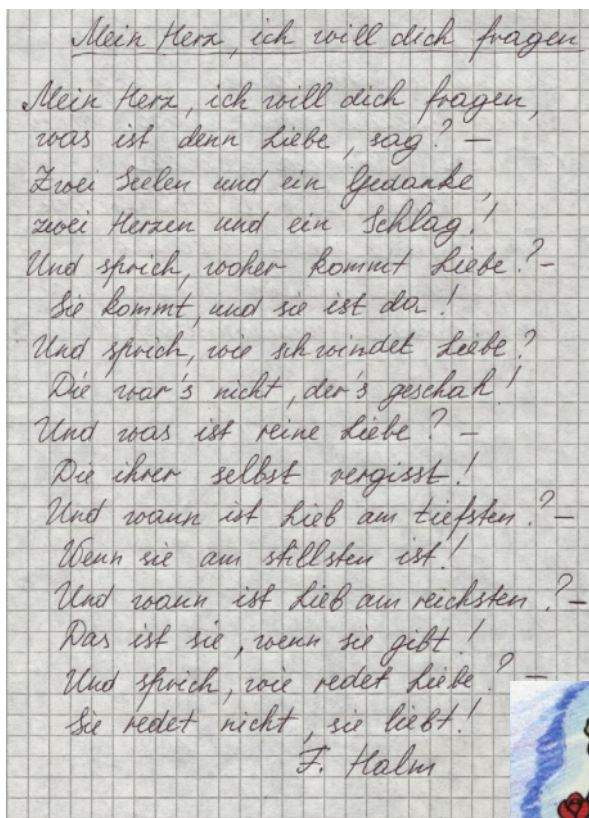 Mein Herz, ich will dich fragen
Mein Herz, ich will dich fragen,
was ist denn Liebe, sag? –
Zwei Seelen und ein Gedanke,
zwei Herzen und ein Schlag!
Und sprich, woher kommt Liebe? –
Sie kommt, und sie ist da!
Und sprich, wie schwindet Liebe?
Die war's nicht, der's geschah!
Und was ist reine Liebe? –
Die ihrer selbst vergisst!
Und wann ist Lieb am tiefsten? –
Wenn sie am stillsten ist!
Und wann ist Lieb am reichsten? –
Das ist sie, wenn sie gibt!
Und sprich, wie redet Liebe? –
Sie redet nicht, sie liebt!
F. Halm